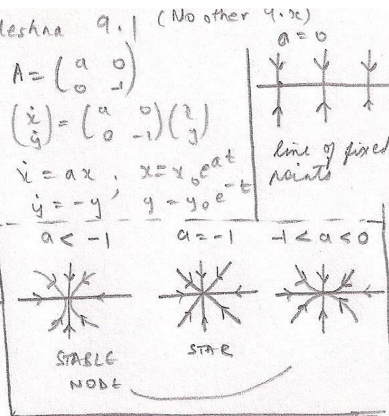 9.1 (No other 9.x)
a = 0
A = ( a 0
0 -1 )
( ẋ ẏ ) = ( a 0
0 -1 ) ( x y )
ẋ = ax , x = x₀e^at
ẏ = -y , y = y₀e^-t
line of fixed
points
a < -1
a = -1
-1 < a < 0
STABLE
NODE
STAR